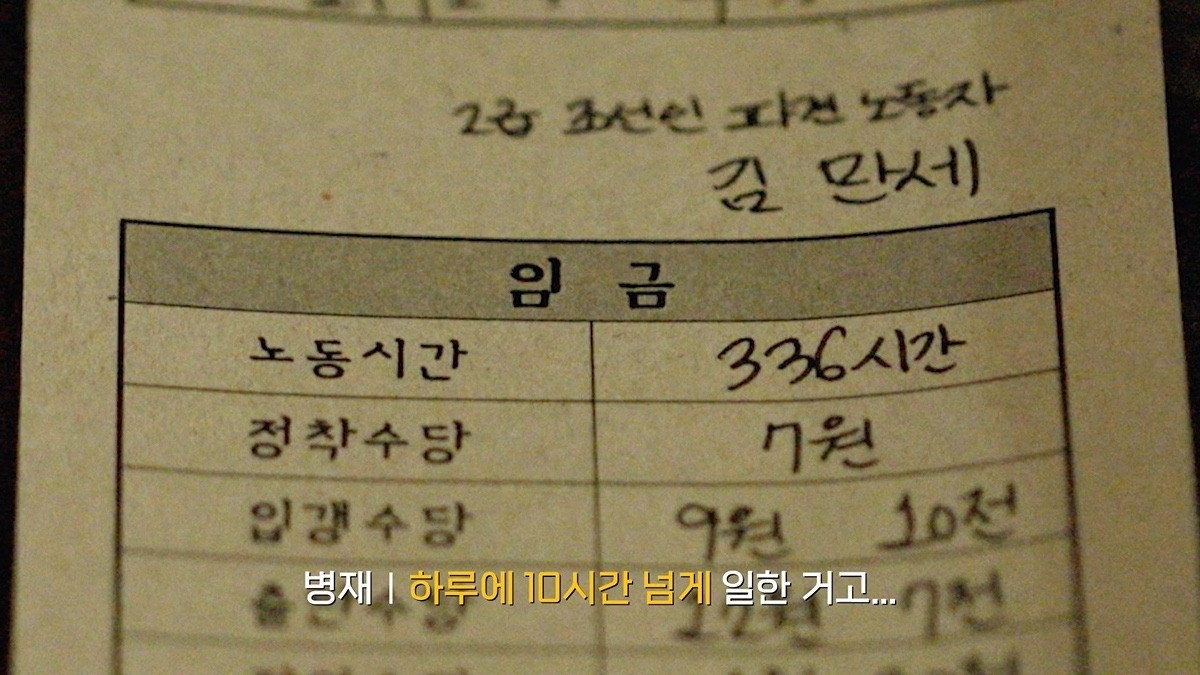 2급 조선인 파견 노동자
김 만세
임 금
노동시간 336시간
정착수당 7원
입갱수당 9원 10전
병재 | 하루에 10시간 넘게 일한 거고...
7전